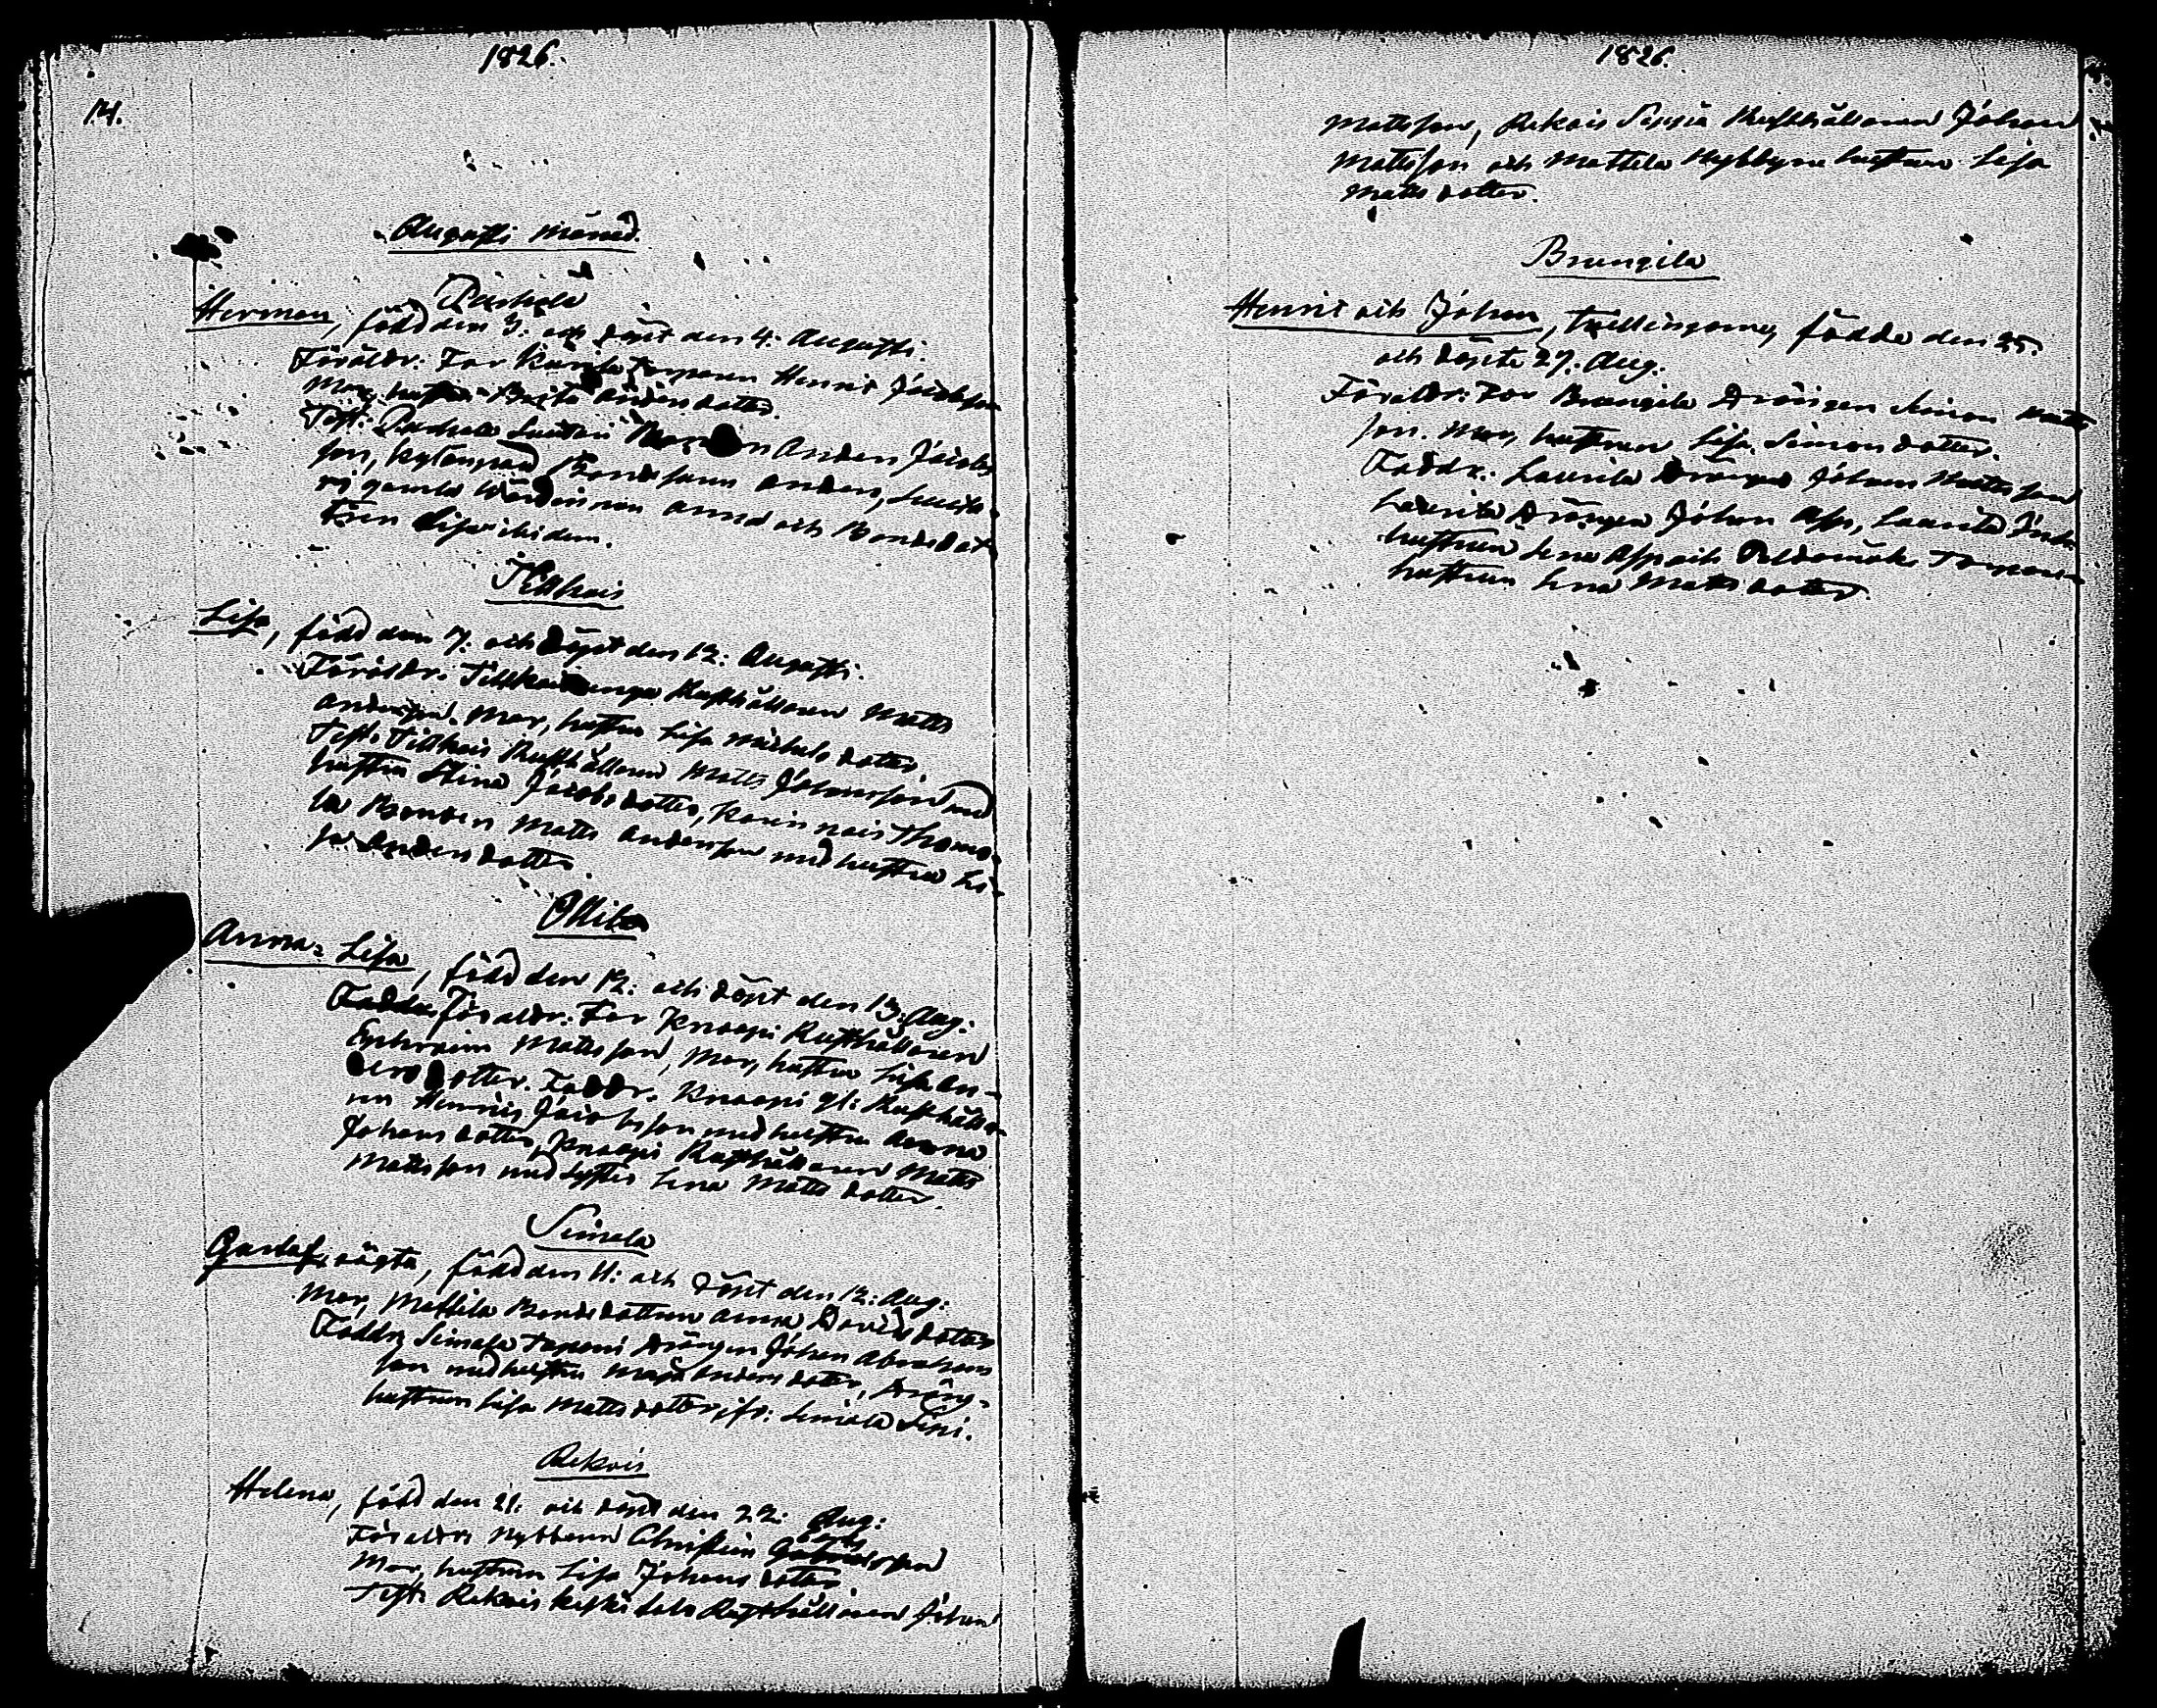 1826.
14.
Augusti månad.
Pushola
Herman, född den 3. och döpt den 4. Augusti.
Föräldr: Far Torparen Henric Jacobsson
Mor, hustrun Brita Andersdotter.
Test: Anders Jacobs
son, Bondesonen Anders,
gamla Wärdinnan Anna och Bondedot
tren Lisa ibidem.
Tillkais
Lisa, född den 7. och döpt den 12. Augusti.
Föräldr. Rusthållaren Matts
Andersson. Mor, hustrun Lisa Michelsdotter.
Test: Tillkais Rusthållaren Matts Johansson med
hustru Stina Jacobsdotter, Karinnais Thoma-
la Bonden Matts Andersson med hustru Li-
sa Andersdotter.
Ollila
Anna-Lisa, född den 12: och döpt den 13: Aug:
Föräldr: Far Knaapi Rusthållaren
Ephraim Mattsson, Mor, hustrun Lisa An-
dersdotter. Faddr. Knaapi gl: Rusthålla-
ren Henric Jacobsson med hustru Anna
Johansdotter, Knaapi Rusthållaren Matts
Mattsson med syster Lena Mattsdotter.
Simala
Gustaf, oägta, född den 11: och döpt den 12: Aug:
Mor, Mattila Bondedottren Anna Davidsdotter
Faddr, Simala Tapani Drängen Johan Abrahams
son med hustru Maja Andersdotter, Dräng-
hustrun Lisa Mattsdotter, fr: Simala Sipi.
Rekois
Helena, född den 21: och döpt den 22: Aug:
Föräldr: Nybbaren Christian
Mor, hustrun Lisa Johansdotter
Test: Rekois Rusthållaren Johan
1826.
Mattsson, Rekois Seppä Rusthållaren Johan
Mattsson och Mattila Nybbyra hustrun Lisa
Mattsdotter.
Brungila
Henric och Johan, Tvillingarne, födde den 25.
och döpte 27. Aug.
Föräldr: Far Brungila Drängen Simon Matts
son. Mor, hustrun Lisa Simonsdotter.
Faddr.: Laurila Drängen Johan Mattsson
Laurila Drängen Johan Asp, Laurila
hustrun Lena Asp och Torpare-
hustrun Lena Mattsdotter.